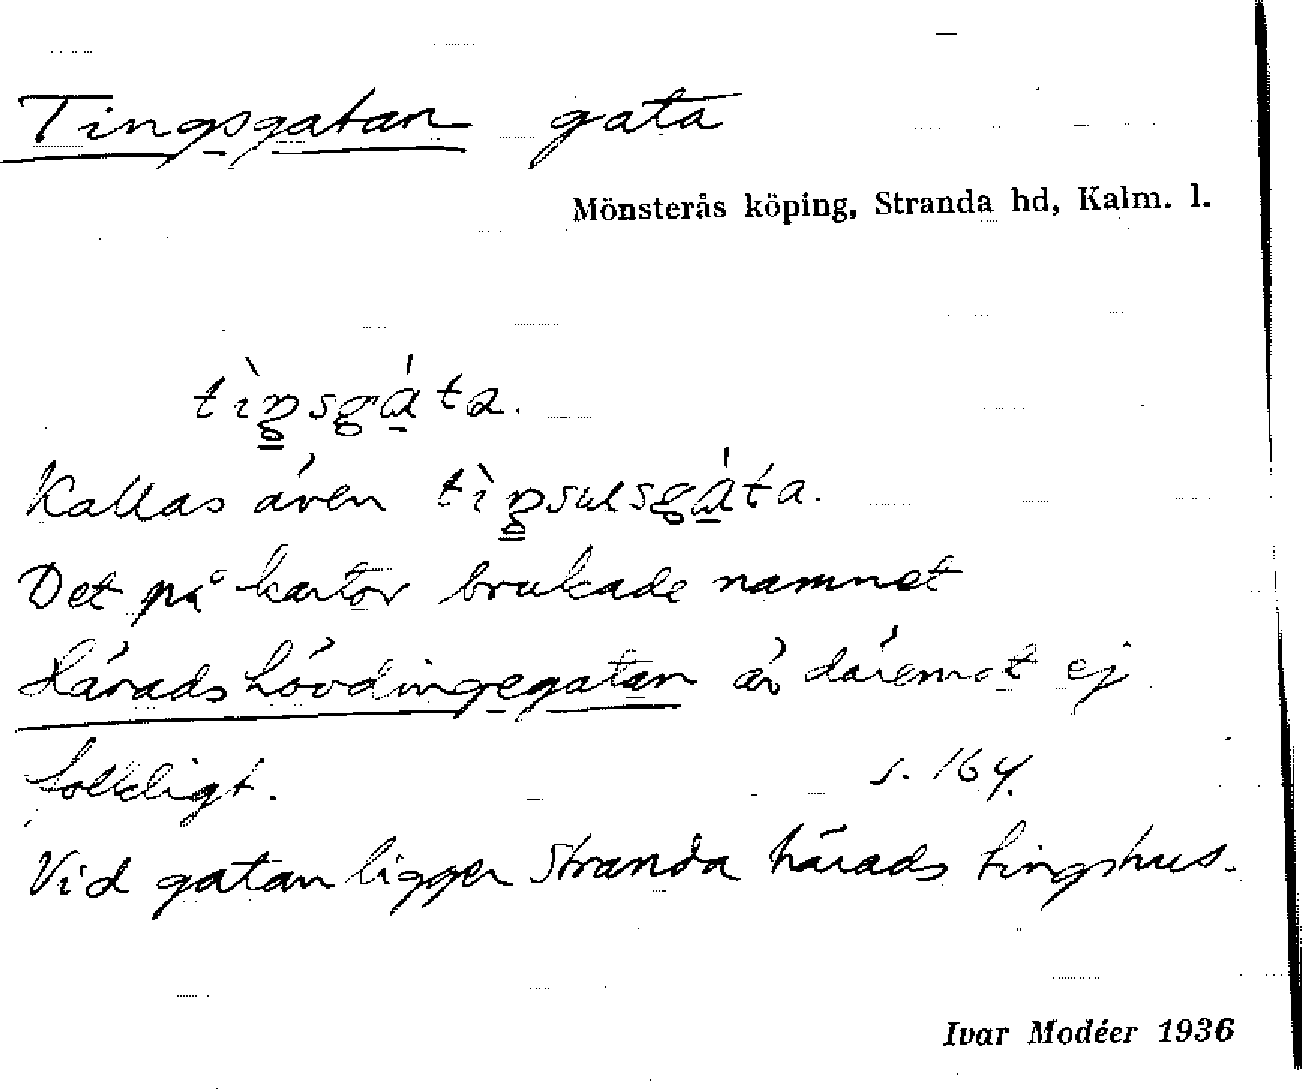 Tingsgatan gata
Mönsterås köping, Stranda hd, Kalm. l.
tìŋsgáta.
Kallas även tìŋsusgáta.
Det på kartor brukade namnet
Häradshövdingegatan är däremot ej
folkligt. s. 164.
Vid gatan ligger Stranda härads tingshus.
Ivar Modéer 1936